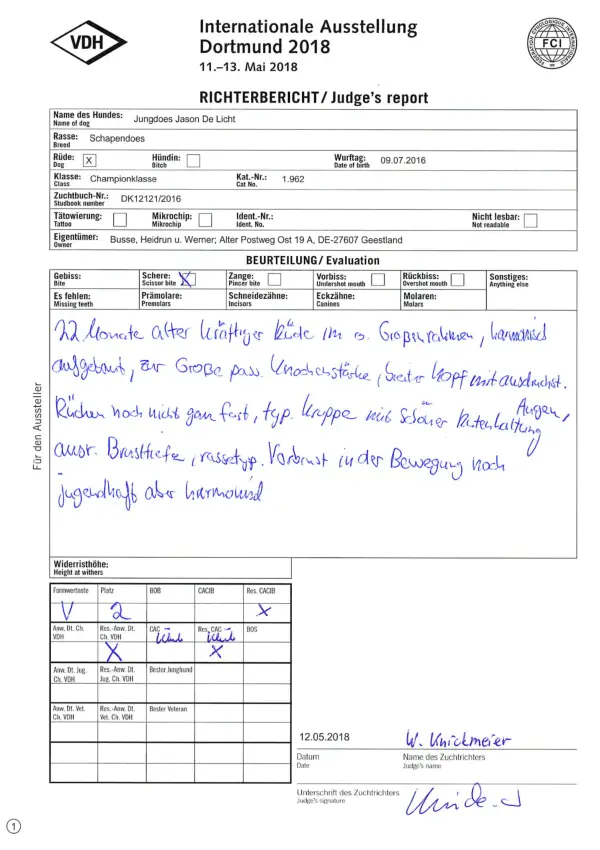 VDH
Internationale Ausstellung
Dortmund 2018
11.–13. Mai 2018
FEDERATION CYNOLOGIQUE INTERNATIONALE
FCI
RICHTERBERICHT / Judge's report
Name des Hundes: Jungdoes Jason De Licht
Name of dog
Rasse: Schapendoes
Breed
Rüde: X Hündin: Wurftag: 09.07.2016
Dog Bitch Date of birth
Klasse: Championklasse Kat.-Nr.: 1.962
Class Cat No.
Zuchtbuch-Nr.: DK12121/2016
Studbook number
Tätowierung: Mikrochip: Ident.-Nr.: Nicht lesbar:
Tattoo Mikrochip Ident. No. Not readable
Eigentümer: Busse, Heidrun u. Werner; Alter Postweg Ost 19 A, DE-27607 Geestland
Owner
BEURTEILUNG / Evaluation
Gebiss: Schere: X Zange: Vorbiss: Rückbiss: Sonstiges:
Bite Scissor bite Pincer bite Undershot mouth Overshot mouth Anything else
Es fehlen: Prämolare: Schneidezähne: Eckzähne: Molaren:
Missing teeth Premolars Incisors Canines Molars
22 Monate alter kräftiger Rüde im o. Großenrahmen, harmonisch
aufgebaut, zur Große pass. Knochenstärke, breiter Kopf mit ausdruckst.
Augen,
Rücken noch nicht ganz fest, typ. Kruppe mit schöner Rutenhaltung
ausr. Brusttiefe, rassetyp. Vorbrust in der Bewegung noch
jugendhaft aber harmonisch
Für den Aussteller
Widerristhöhe:
Height at withers
Formwertnote Platz BOB CACIB Res. CACIB
V 2 X
Anw. Dt. Ch. VDH Res.-Anw. Dt. Ch. VDH CAC – Club Res. CAC – Club BOS
X X
Anw. Dt. Jug. Ch. VDH Res.-Anw. Dt. Jug. Ch. VDH Bester Junghund
Anw. Dt. Vet. Ch. VDH Res.-Anw. Dt. Vet. Ch. VDH Bester Veteran
12.05.2018 W. Knickmeier
Datum Name des Zuchtrichters
Date Judge's name
Unterschrift des Zuchtrichters
Judge's signature
1